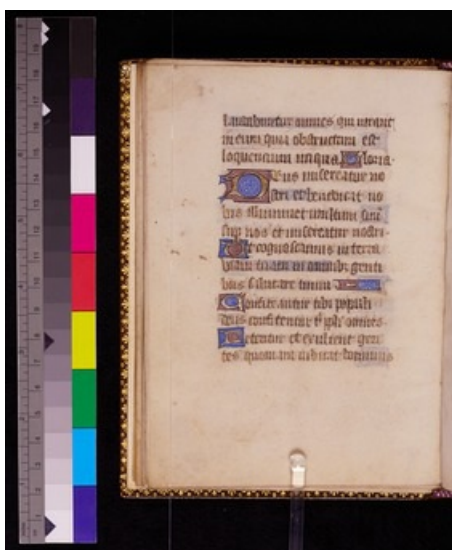 laudabuntur omnes qui iurant
in eum quia obstructum est
loquencium iniqua. Gloria.
Deus misereatur no
stri et benedicat no
bis illuminet vultum suū
sup nos et misereatur nostri
Ut cognoscamus in terra
viam tuam in omnibȝ genti
bus salutare tuum
Confiteantur tibi populi
deus confiteantur t̄ pp̄li omnes
Letentur et exultent gen
tes quoniam iudicas populos